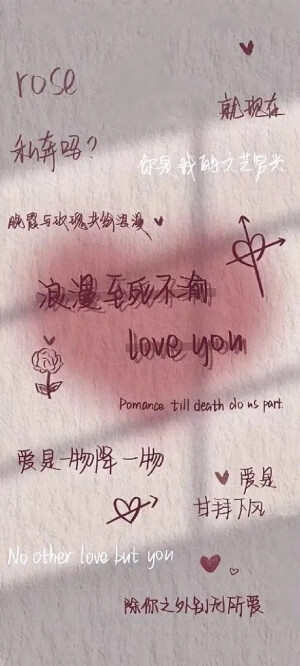 rose
就现在
私奔吗?
你是我的文艺复兴
晚霞与玫瑰共倾浪漫
浪漫至死不渝
love you
Pomance till death do us part.
爱是一物降一物
爱是
甘拜下风
No other love but you
除你之外别无所爱